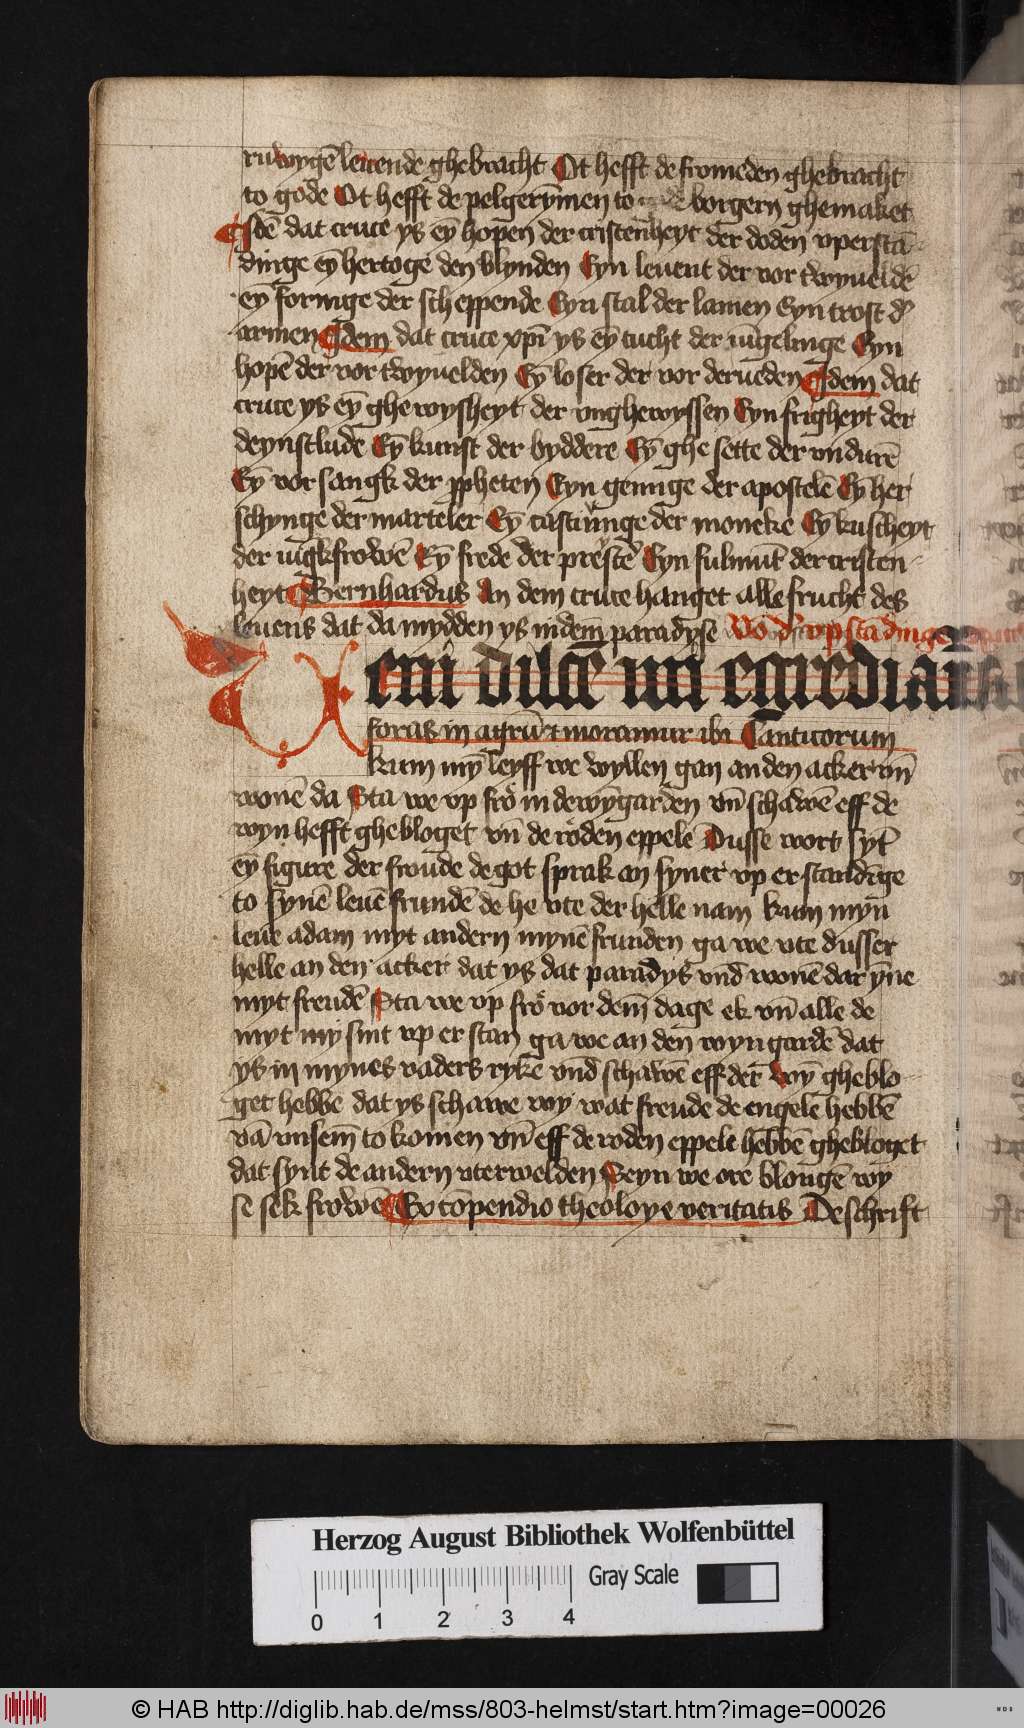 ruwygē leuende ghebracht Ot hefft de fromeden ghebracht
to gode Ot hefft de pelgerȳmen to borgern ghemaket
Idē dat cruce ys eȳ hopen der cristenheyt der doden vperstā-
dinge eȳ hertoge den blynden Eyn leuent der vor twyueldē
eȳ foringe der scheppende Eyn stal der lamen Eyn trost d'
armen Idem dat cruce xp̄i ys eȳ tucht der iūgelinge Eyn
hopē der vor twyuelden Eȳ loser der vor derueden Idem dat
cruce ys eȳ ghe wysheyt der vnghewyssen Eyn frigheyt der
deynstlude Eȳ kunst der byddere Eȳ ghe sette der vndurē
Eȳ vor sangk der ꝓpheten Eyn genuge der apostelē Eȳ her
schynge der marteler Eȳ castiūnge der moneke Eȳ kuscheyt
der iūgkfrowē Eȳ frede der prestē Eyn fulmūt der cristen-
heyt Bernhardus An dem cruce hanget alle frucht des
leuens dat da mydden ys indem paradyse Vō d' vpstādinge
Veni dilcē mi egrediam̄
foras in agrū ⁊ moramur ibi Canticorum
kum mȳ leyff we wyllen gan an den acker vn̄
wonē da Sta we vp fro in de wȳgarden vn̄ schawē eff de
wyn hefft ghebloget vn̄ de roden eppele Dusse wort syt
eȳ figure der froude de got sprak an syner vp erstandīge
to synē leuē frundē de he vte der helle nam kum myn̄
leue adam myt andern mynē frunden ga we vte dusser
helle an den acker dat ys dat paradys vnd wonē dar yne
myt freudē Sta we vp fro vor dem dage ek vn̄ alle de
myt my sint vp er stan ga we an den wyn gardē dat
ys in mynes vaders rykē vnd schawē eff der wȳ gheblo-
get hebbe dat ys schawe wy wat freude de engele hebbē
vā vnsem to komen vn̄ eff de roden eppele hebbē ghebloget
dat synt de andern vterwelden Seyn we ore blougē wy
se sek frowē Ex cōpendio theoloye veritatis De schrift
Herzog August Bibliothek Wolfenbüttel
Gray Scale
0 1 2 3 4
© HAB http://diglib.hab.de/mss/803-helmst/start.htm?image=00026